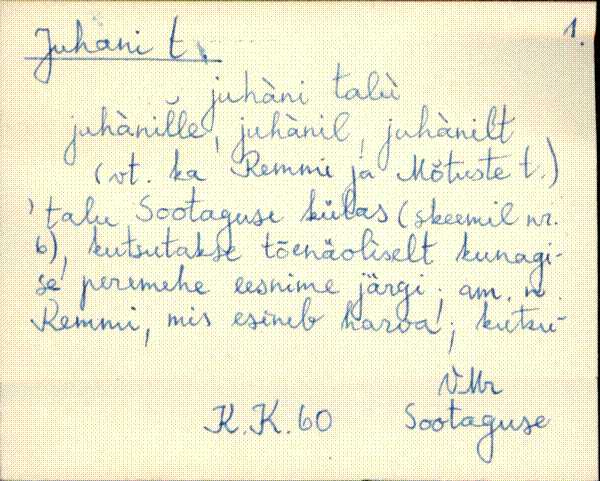 1.
Juhani t.
juhàni talù
juhànil̆le, juhànil, juhànilt
(vt. ka Remmi ja Mõtuste t.)
'talu Sootaguse külas (skeemil nr.
6), kutsutakse tõenäoliselt kunagi-
se peremehe eesnime järgi; am. n.
Remmi, mis esineb harva'; kutsu-
V.Mr
K.K.60 Sootaguse